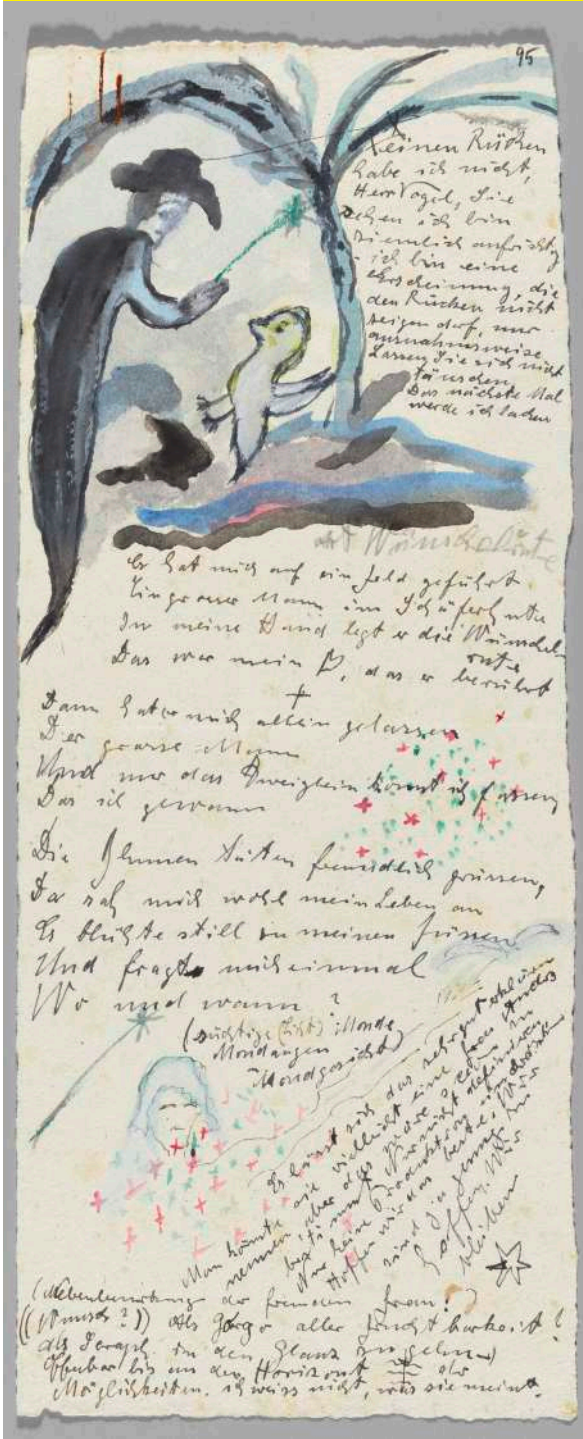 95
Keinen Rücken
habe ich nicht,
Herr Vogel, Sie
sehen ich bin
ziemlich aufrichtig
ich bin eine
Erscheinung, die
den Rücken nicht
zeigen darf, nur
ausnahmsweise
Lassen Sie sich nicht
täuschen
Das nächste Mal
werde ich lachen
Wünschelrute
Er hat mich auf ein Feld geführt
Ein grosser Mann im Schäferhute
In meine Hand legt er die Wünschel
rute
Das war mein, das er berührt
Dann hat er mich allein gelassen
Der grosse Mann
Und nur das Zweiglein konnt ich fassen
Das ich gewann
Die Blumen täten freundlich grüssen,
Da sah mich wohl mein Leben an
Es blühte still zu meinen Füssen
Und fragte mich einmal
Wo und wann?
(süchtige (Licht) Monde
Mondaugen
Mondgesicht)
Es lässt sich das sehr gut erklären
Man könnte sie vielleicht eine frau
nennen, aber das
bestimmt nicht definieren
Nur keine Produktion
Hoffen wir das beste für
sind ja genug
hoffen. Wir
bleiben
(Nebenbemerkung der fremden frau!)
((Wunsch?)) Als aller Fruchtbarkeit!
als in den Glanz zu gehn
Offenbar bis an den Horizont der
Möglichkeiten. ich weiss nicht, was sie meint.